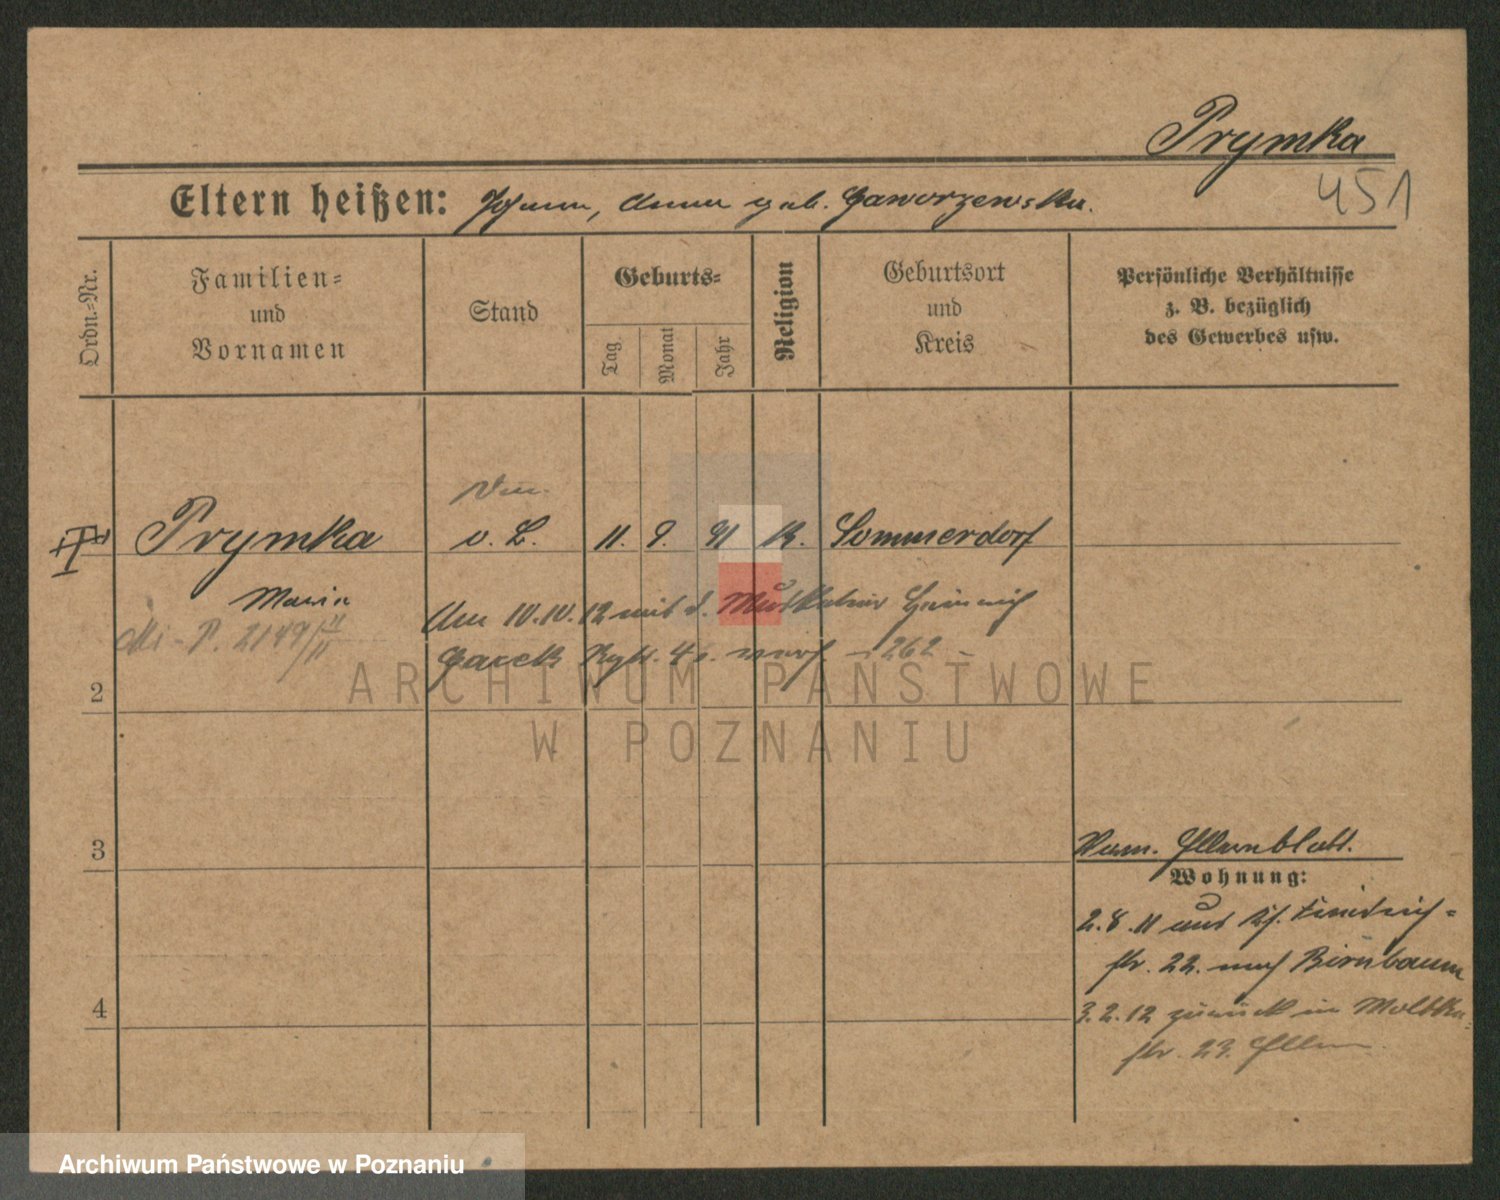 Prymka
451
Eltern heißen: Johann, Anna geb. Gaworzewska.
Ordn.=Nr.
Familien=
und
Vornamen
Stand
Geburts=
Tag
Monat
Jahr
Religion
Geburtsort
und
Kreis
Persönliche Verhältnisse
z. B. bezüglich
des Gewerbes usw.
Prymka
o. B.
11. 9. 91 K. Sommerdorf
Maria
Mi-P. 2149/II
Am 10.10.12 mit d. Musketier Heinrich
Garek Regt. 46. verh. 262
2
ARCHIWUM PAŃSTWOWE
W POZNANIU
3
Pers. Elternblatt.
Wohnung:
2.8.11 aus Friedrich=
str. 22. nach Birnbaum
3.2.12 zurück in Moltke=
str. 23. Eltern
4
Archiwum Państwowe w Poznaniu